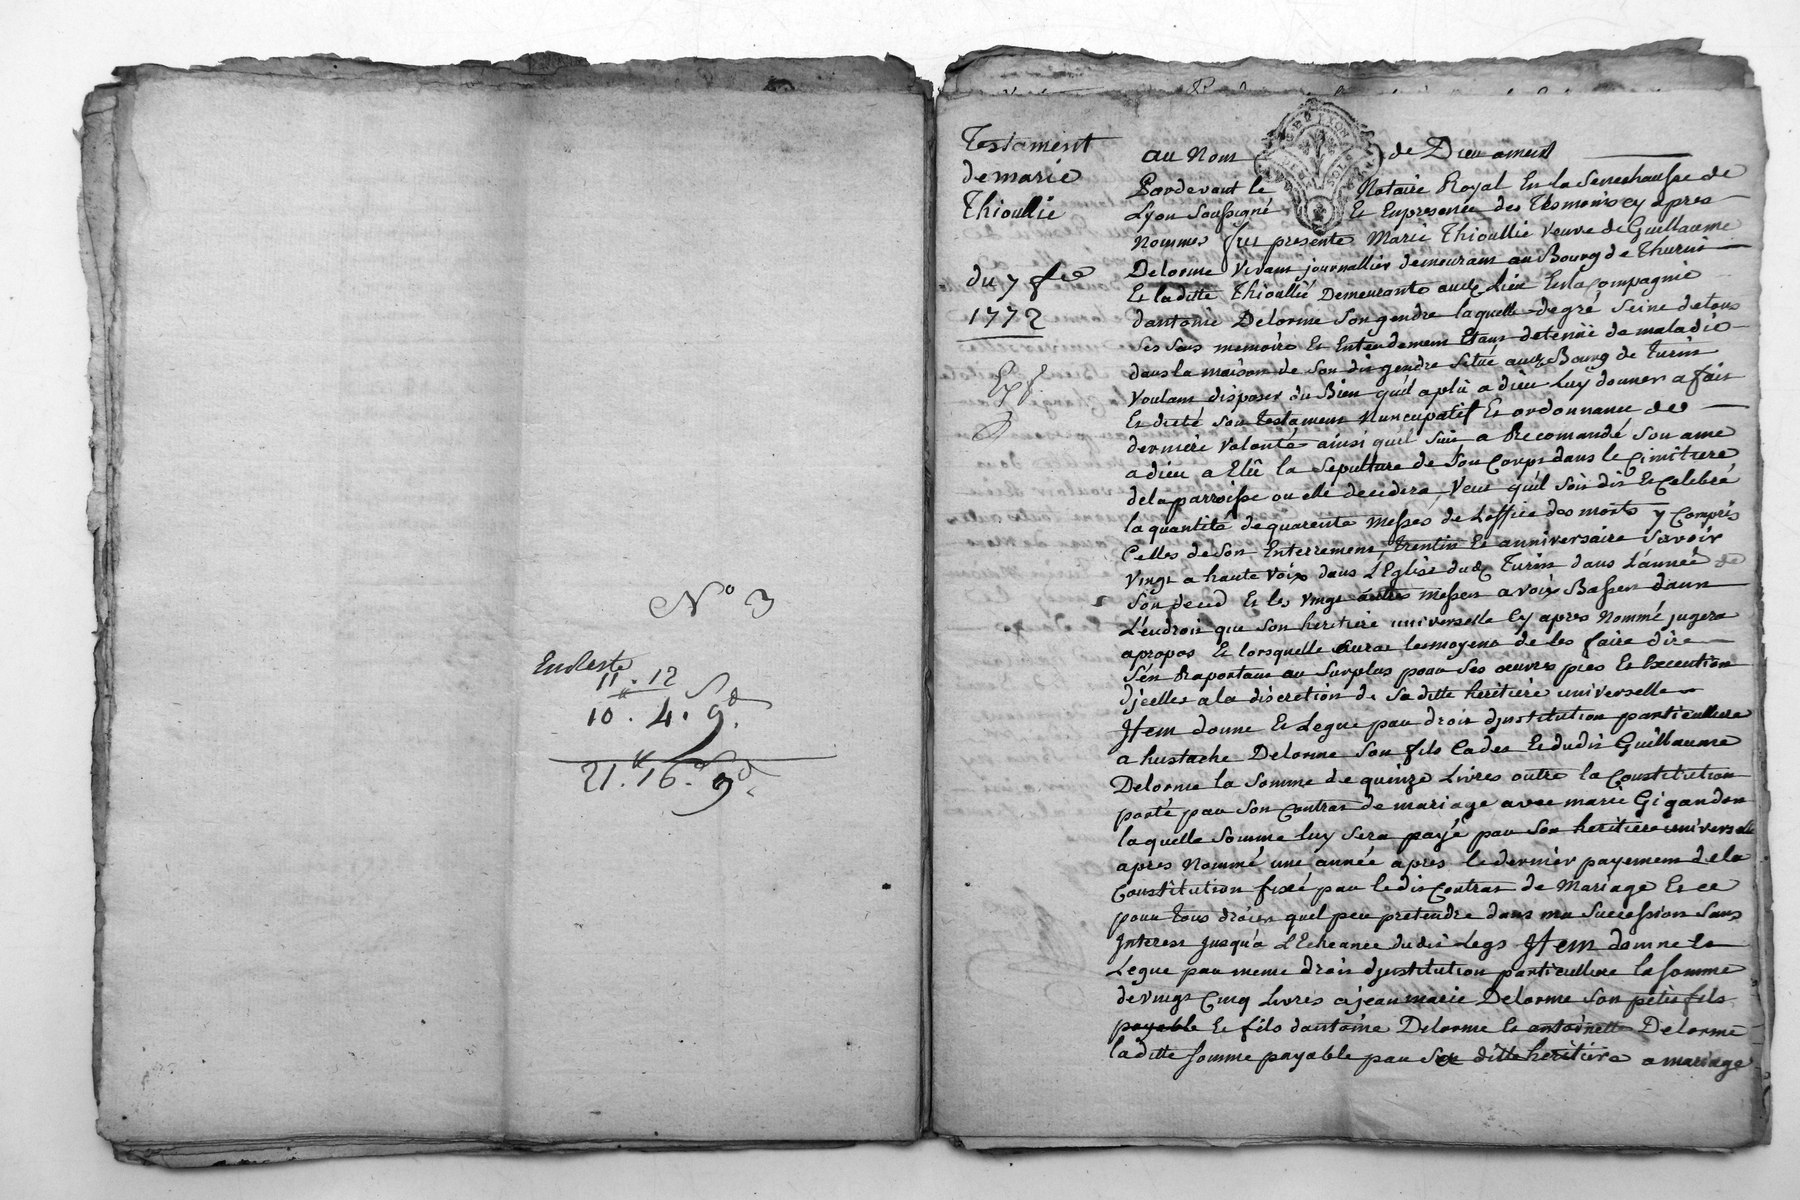 N° 3
En Reste
11 . 12
10 . 4 . 9d.
21 . 16 . 9d.
Testament
de marie
Thioullie
du 7 fer
1772
Exp.
au Nom de Dieu amen
Pardevant le Notaire Royal En la Seneschausse de
Lyon Soussigné Et En presence des Tesmoins cy apres
Nommes fut presente Marie Thioullie Veuve de Guillaume
Delorme Vivant journallier demeurant au Bourg de Thurin
Et la ditte Thioullié Demeurante audt Lieu En la Compagnie
dantoine Delorme Son gendre laquelle de gré Seine de tous
Ses Sens memoire Et Entendement Etant detenüe de maladie
dans la maison de Son dit gendre Situé audt Bourg de Turin
Voulant disposer du Bien quil a plû a dieu Luy donner a fait
Et dicté Son Testament Nuncupatif Et ordonnance de
derniere Volonté ainsi quil Suit a Recomandé Son ame
a dieu a Elû la Sepulture de Son Corps dans le Cimitiere
de la parroisse ou elle decedera, Veut quil Soit dit Et Celebré
la quantité de quarente Messes de Loffice des morts y Compris
Celles de Son Enterrement, trentin Et anniversaire Savoir
Vingt a haute Voix dans L'Eglise dudt Turin dans L'année de
Son deced Et les Vingt autres Messes a voix Basses dans
L'endroit que Son heritiere universelle Cy apres Nommé jugera
apropos Et lorsquelle aura les moyens de les faire dire
S'en Raportant au Surplus pour Ses oeuvres pies Et Execution
djcelles a la discretion de Sa ditte heritiere universelle
Jtem donne Et Legue par droit djnstitution particulliere
a hustache Delorme Son fils Cadet Et dudit Guillaume
Delorme la Somme de quinze Livres outre la Constitution
porté par Son Contrat de mariage avec marie Gigandon
laquelle Somme luy Sera payé par Son heritiere universelle
apres Nommé une année apres le dernier payement de la
Constitution fixé par ledit Contrat de Mariage Et ce
pour tous droits quel peu pretendre dans ma Succession Sans
Jnterest Jusqu'a L'Echeance dudit Legs Jtem donne Et
Legue par meme droit djnstitution particulliere la Somme
de vingt Cinq Livres a jean marie Delorme Son petit fils
payable Et fils dantoine Delorme Et antoinette Delorme
la ditte Somme payable par Sa ditte heritiere a mariage